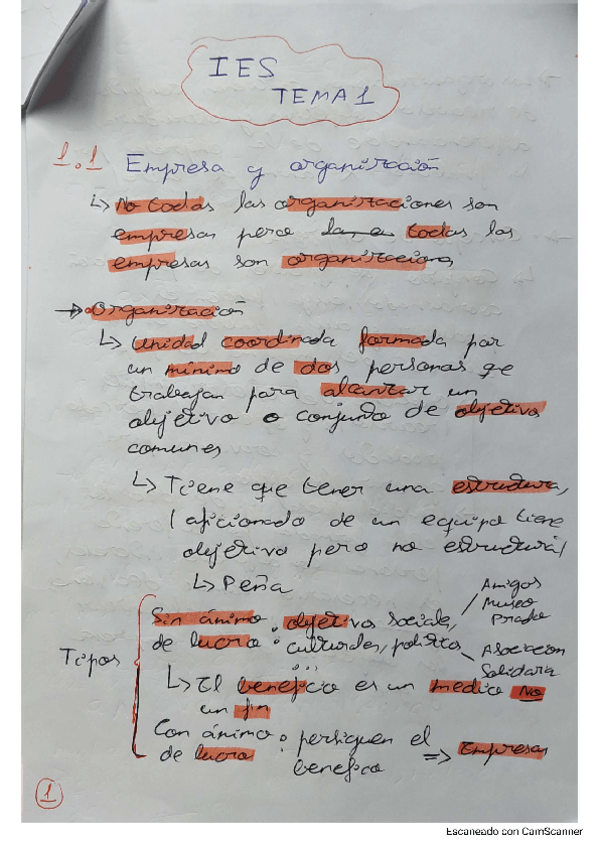 IES
TEMA 1
1.1 Empresa y organización
↳ No todas las organizaciones son
empresas pero todas las
empresas son organizaciones
→ organización
↳ Unidad coordinada formada por
un mínimo de dos personas que
trabajan para alcanzar un
objetivo o conjunto de objetivos
comunes
↳ Tiene que tener una estructura,
(aficionado de un equipo tiene
objetivo pero no estructura)
↳ Peña
Tipos
Sin ánimo de lucro : objetivos sociales,
culturales, políticos...
Amigos
Museo
Prado
Asociación
Solidaria
↳ El beneficio es un medio No
un fin
Con ánimo de lucro : persiguen el
beneficio ⇒ Empresas
1
Escaneado con CamScanner